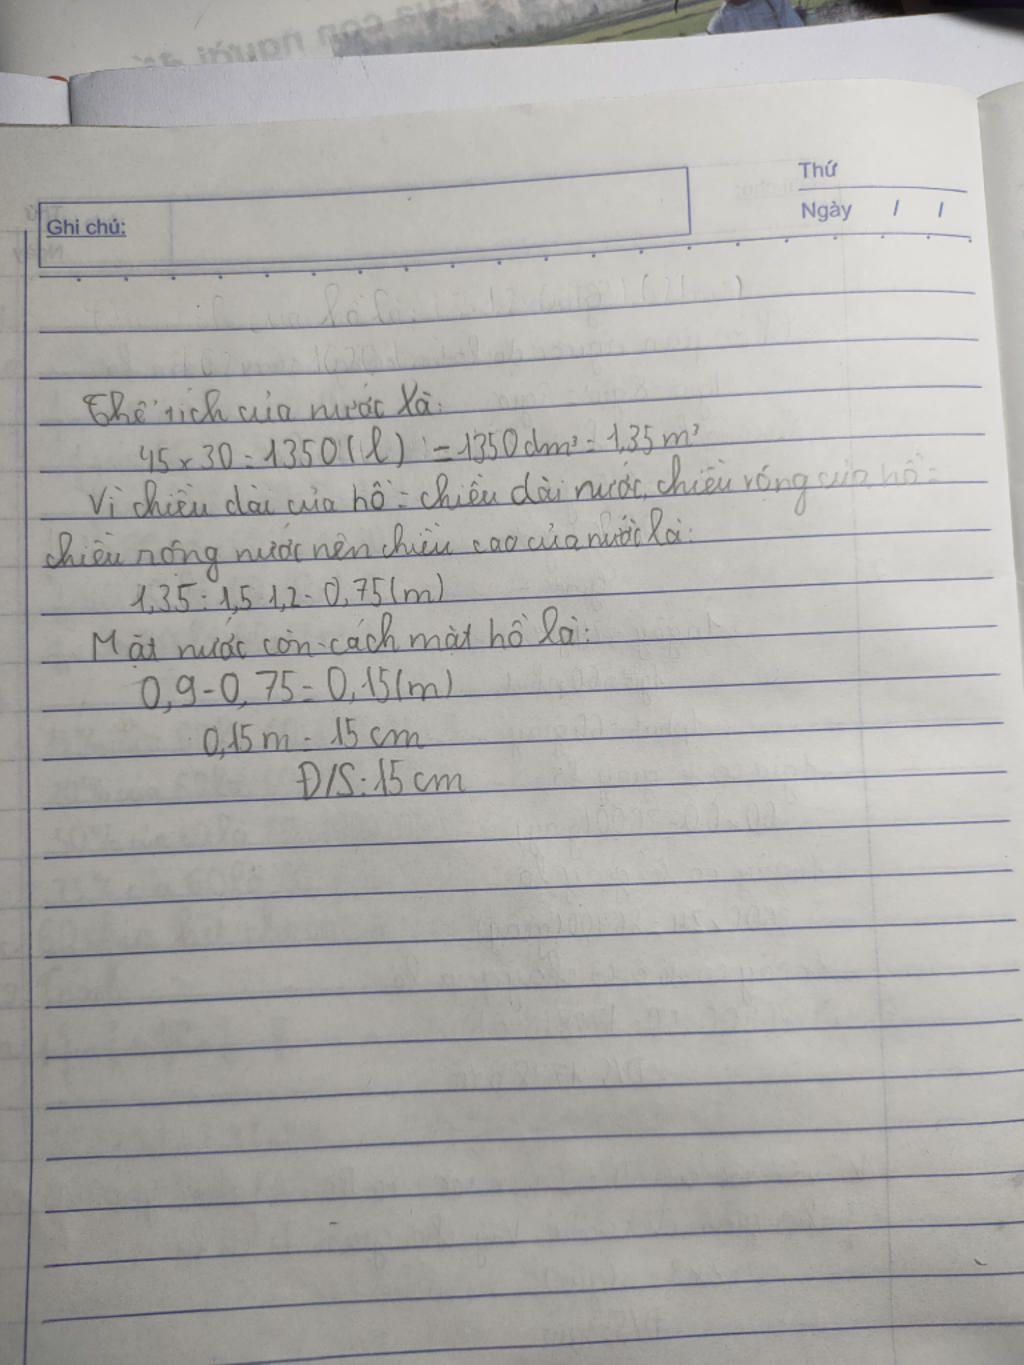 Thứ
Ngày / /
Ghi chú:
Thể tích của nước là:
45 x 30 = 1350 (l) = 1350 dm³ = 1,35 m³
Vì chiều dài của hồ = chiều dài nước, chiều rộng của hồ =
chiều rộng nước nên chiều cao của nước là:
1,35 : 1,5 : 1,2 = 0,75 (m)
Mặt nước còn cách mặt hồ là:
0,9 - 0,75 = 0,15 (m)
0,15 m = 15 cm
Đ/S: 15 cm